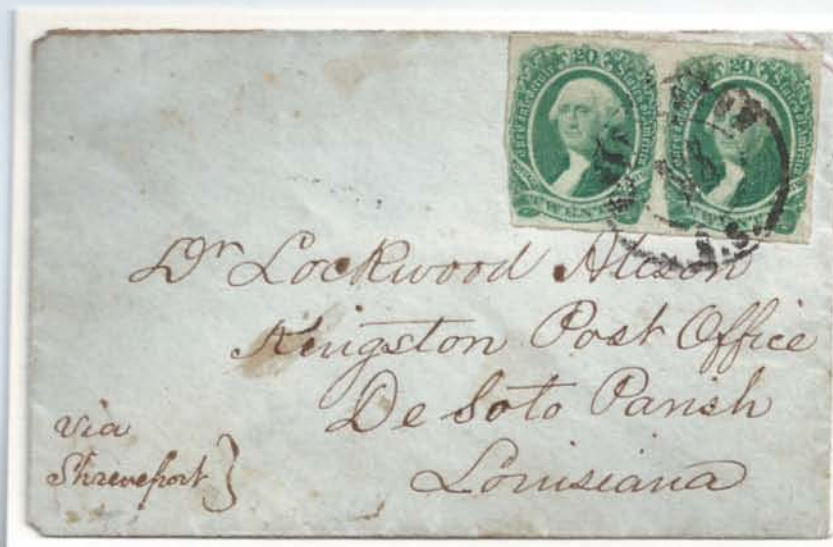 20
20
States of America
Dr Lockwood Alison
Kingston Post Office
De Soto Parish
Louisiana
via
Shreveport